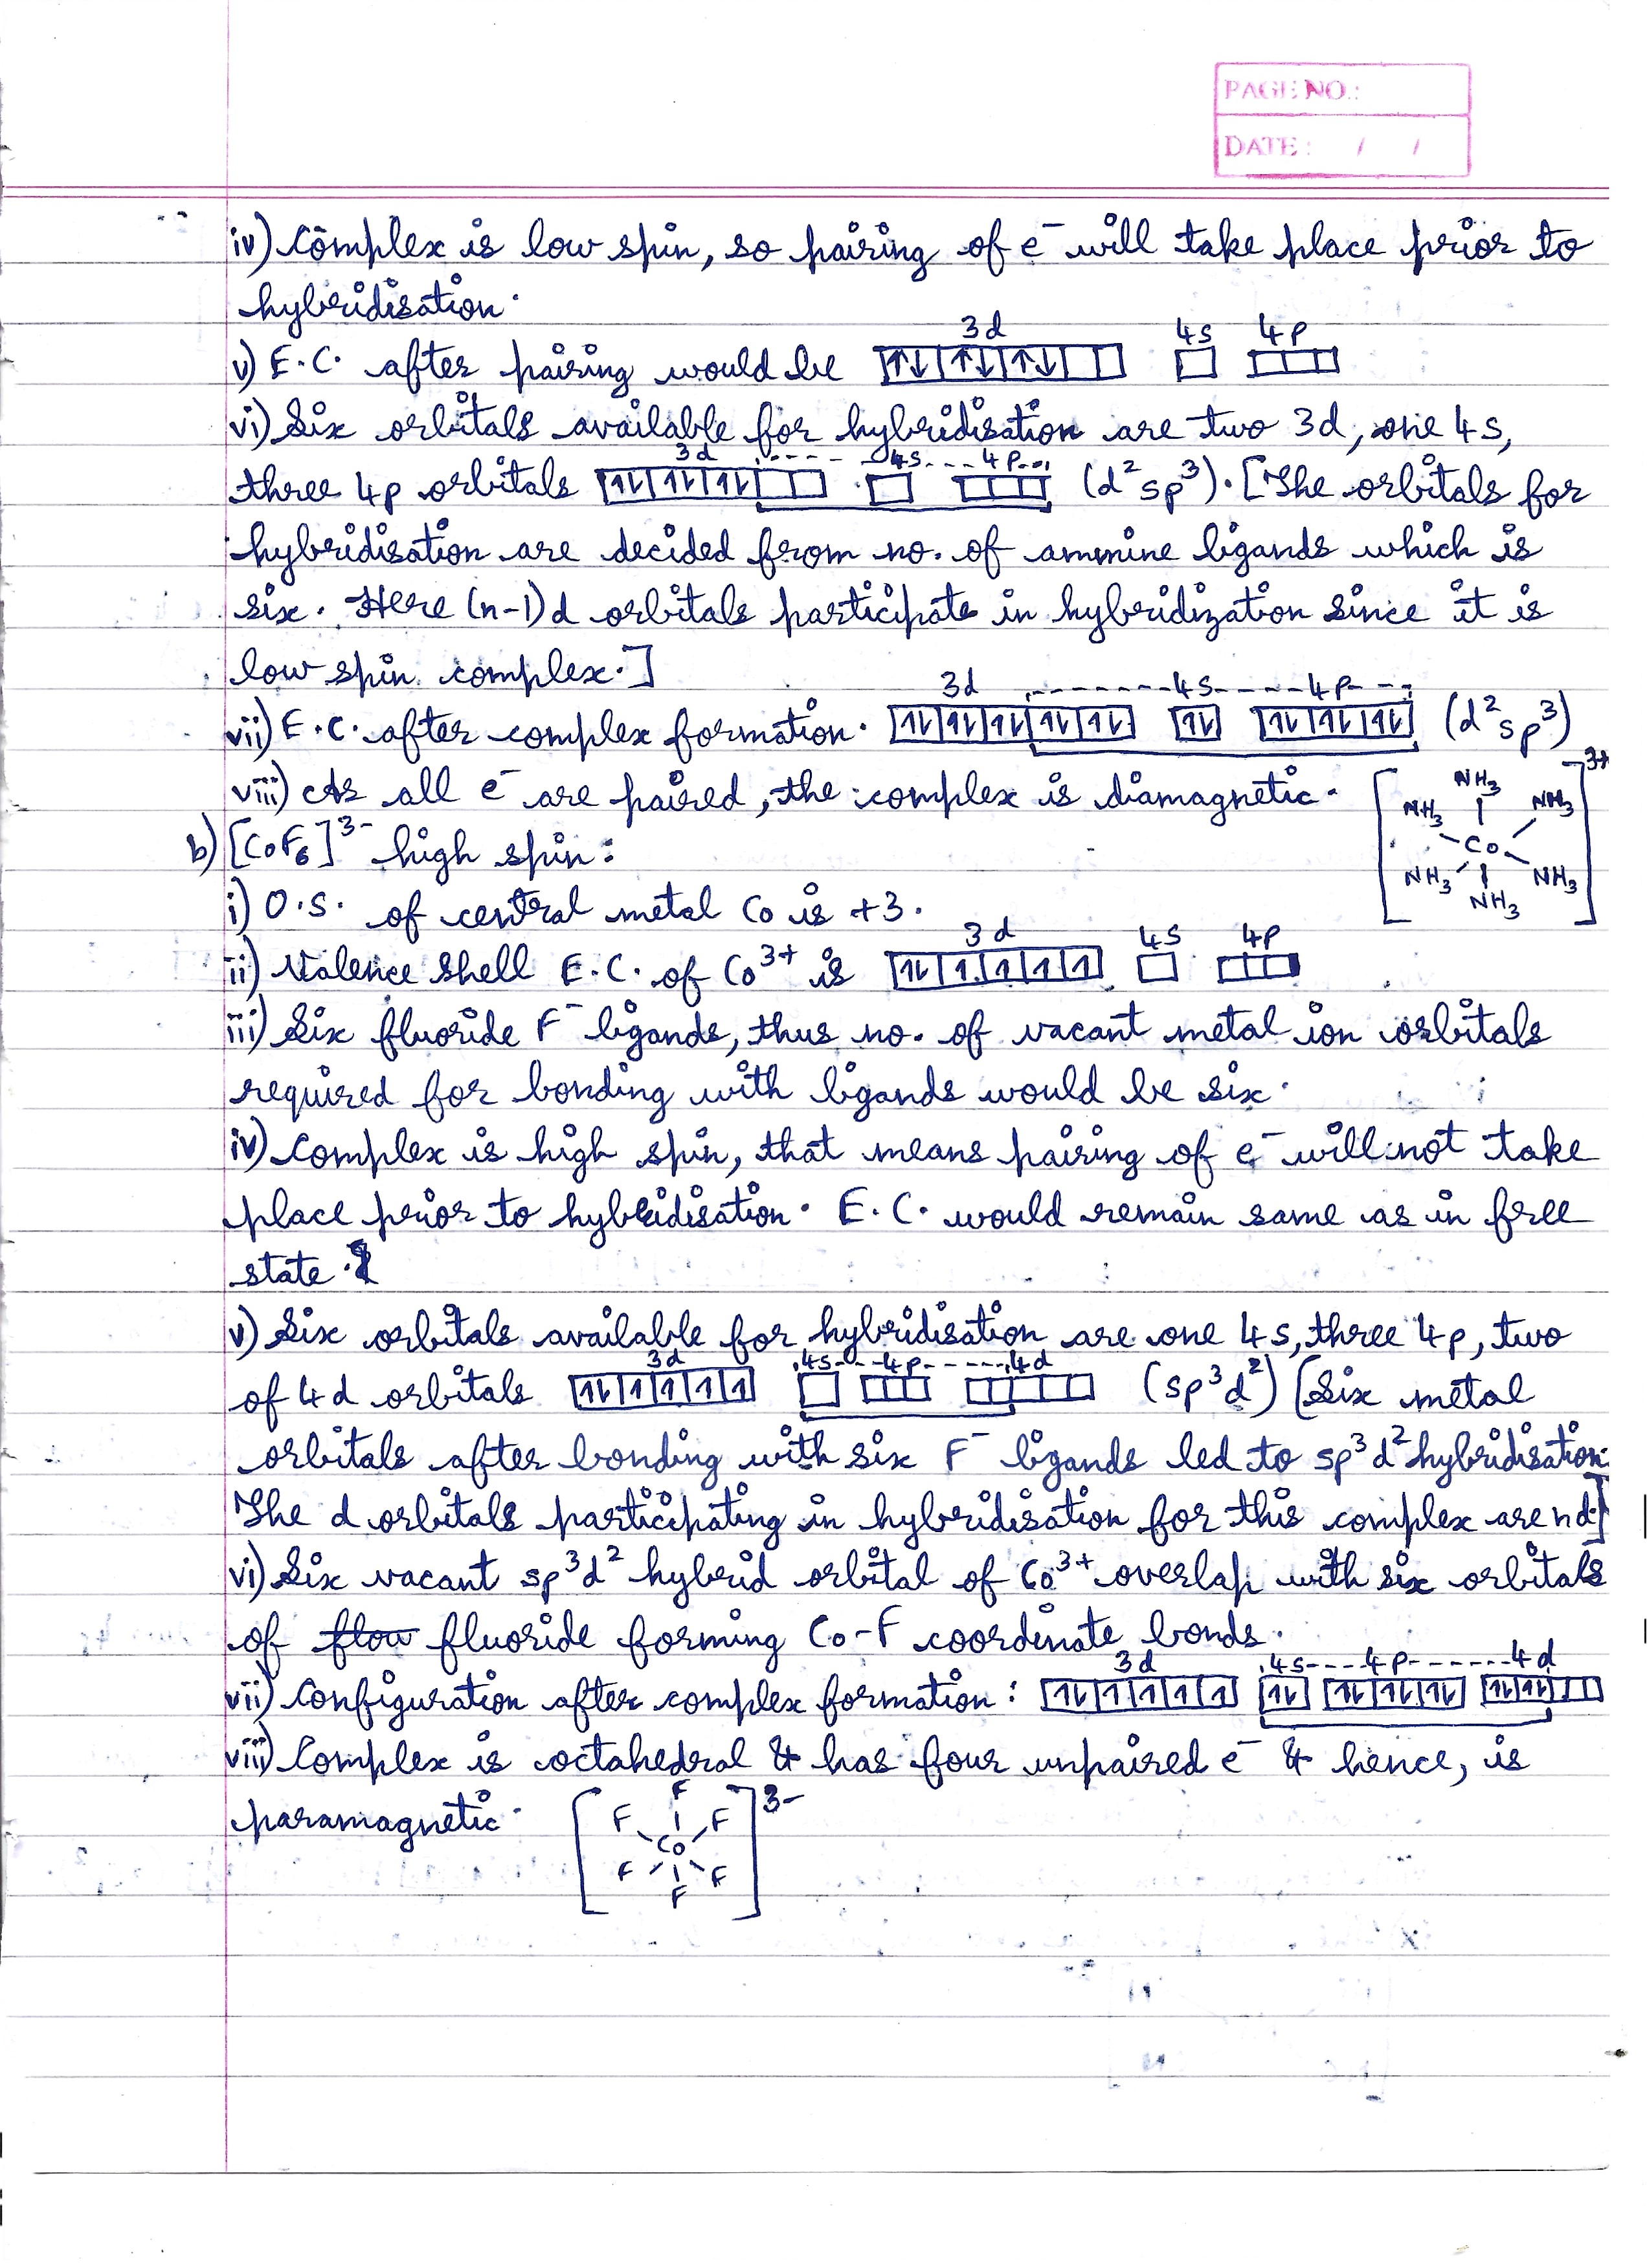 PAGE NO.:
DATE: / /
iv) Complex is low spin, so pairing of e⁻ will take place prior to
hybridisation.
3d 4s 4p
v) E.C. after pairing would be ↑↓ ↑↓ ↑↓
vi) Six orbitals available for hybridisation are two 3d, one 4s,
3d 4s 4p
three 4p orbitals 1↓ 1↓ 1↓ (d²sp³). [The orbitals for
hybridisation are decided from no. of ammine ligands which is
six. Here (n-1)d orbitals participate in hybridization since it is
low spin complex.]
3d 4s 4p
vii) E.C. after complex formation. 1↓ 1↓ 1↓ 1↓ 1↓ 1↓ 1↓ 1↓ 1↓ (d²sp³)
viii) As all e⁻ are paired, the complex is diamagnetic.
[NH₃ NH₃ NH₃ Co NH₃ NH₃ NH₃]³⁺
b) [CoF₆]³⁻ high spin:
i) O.S. of central metal Co is +3.
3d 4s 4p
ii) Valence shell E.C. of Co³⁺ is 1↓ 1 1 1 1
iii) Six fluoride F⁻ ligands, thus no. of vacant metal ion orbitals
required for bonding with ligands would be six.
iv) Complex is high spin, that means pairing of e⁻ will not take
place prior to hybridisation. E.C. would remain same as in free
state.
v) Six orbitals available for hybridisation are one 4s, three 4p, two
3d 4s 4p 4d
of 4d orbitals 1↓ 1 1 1 1 (sp³d²) [Six metal
orbitals after bonding with six F⁻ ligands led to sp³d² hybridisation.
The d orbitals participating in hybridisation for this complex are nd.]
vi) Six vacant sp³d² hybrid orbital of Co³⁺ overlap with six orbitals
of flow fluoride forming Co-F coordinate bonds.
3d 4s 4p 4d
vii) Configuration after complex formation: 1↓ 1 1 1 1 1↓ 1↓ 1↓ 1↓ 1↓ 1↓
viii) Complex is octahedral & has four unpaired e⁻ & hence, is
paramagnetic. [F F F Co F F F]³⁻